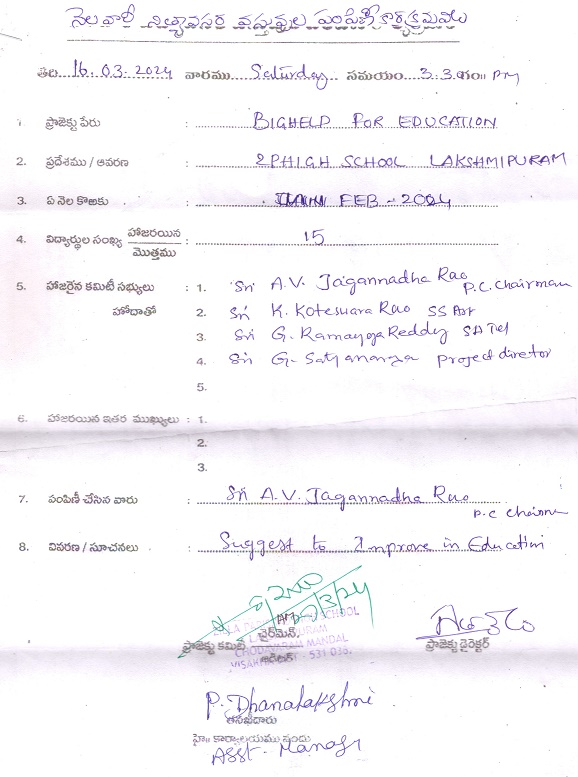 నెలవారీ నిత్యావసర వస్తువుల పంపిణీ కార్యక్రమము
తేది. 16.03.2024 వారము. Saturday సమయం. 3.30గం॥ PM
1. ప్రాజెక్టు పేరు : BIGHELP FOR EDUCATION
2. ప్రదేశము / ఆవరణ : ZPHIGH SCHOOL LAKSHMIPURAM
3. ఏ నెల కొఱకు : FEB - 2024
4. విద్యార్థుల సంఖ్య హాజరయిన / మొత్తము : 15
5. హాజరైన కమిటీ సభ్యులు : 1. Sri A.V. Jagannadha Rao P.C. Chairman
హోదాతో 2. Sri K. Koteswara Rao SS Asst
3. Sri G. Ramayoga Reddy SA Tel
4. Sri G. Satyananda project director
5.
6. హాజరయిన ఇతర ముఖ్యులు : 1.
2.
3.
7. పంపిణీ చేసిన వారు : Sri A.V. Jagannadha Rao
P.C Chairman
8. వివరణ / సూచనలు : Suggest to Improve in Education
SCHOOL
ప్రాజెక్టు కమిటీ ఛైర్‌మెన్, ప్రాజెక్టు డైరెక్టర్
CHODAVARAM MANDAL
531 036.
P. Dhanalakshmi
తనిఖీదారు
హై॥ కార్యాలయము నందు
Asst. Manager